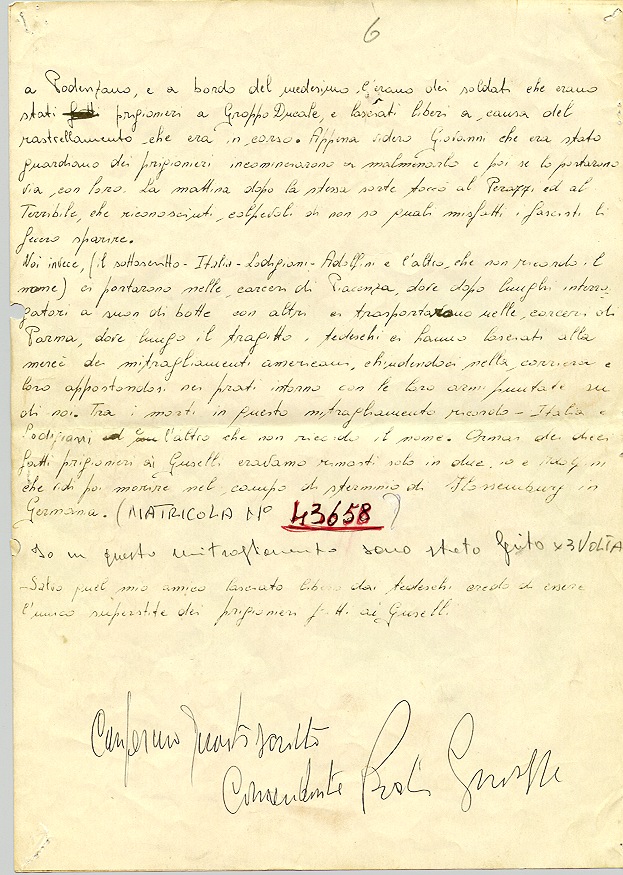 6
a Podenzano, e a bordo del medesimo c'erano dei soldati che erano
stati prigionieri a Groppo Ducale, e lasciati liberi a causa del
rastrellamento che era in corso. Appena videro Giovanni che era stato
guardiano dei prigionieri incominciarono a malmenarlo e poi se lo portarono
via con loro. La mattina dopo la stessa sorte toccò al Perazzi ed al
Terribile, che riconosciuti, colpevoli di non so quali misfatti i fascisti li
fecero sparire.
Noi invece, (il sottoscritto - Italia - Lodigiani - Adolfini e l'altro, che non ricordo il
nome) ci portarono nelle carceri di Piacenza, dove dopo lunghi interro-
gatori a suon di botte con altri ci trasportarono nelle carceri di
Parma, dove lungo il tragitto i tedeschi ci hanno lasciati alla
mercè dei mitragliamenti americani, chiudendoci nella corriera e
loro appostandosi nei prati intorno con le loro armi puntate su
di noi. Tra i morti in questo mitragliamento ricordo - Italia e
Lodigiani l'altro che non ricordo il nome. Ormai dei dieci
fatti prigionieri ai Guselli eravamo rimasti solo in due, io e
che vidi poi morire nel campo di sterminio di Flossemburg in
Germania. (MATRICOLA N° 43658)
Io in questo mitragliamento sono stato ferito x 3 VOLTA
- Salvo quel mio amico lasciato libero dai tedeschi credo di essere
l'unico superstite dei prigionieri fatti ai Guselli.
Confermo quanto scritto
Comandante Prati Giuseppe